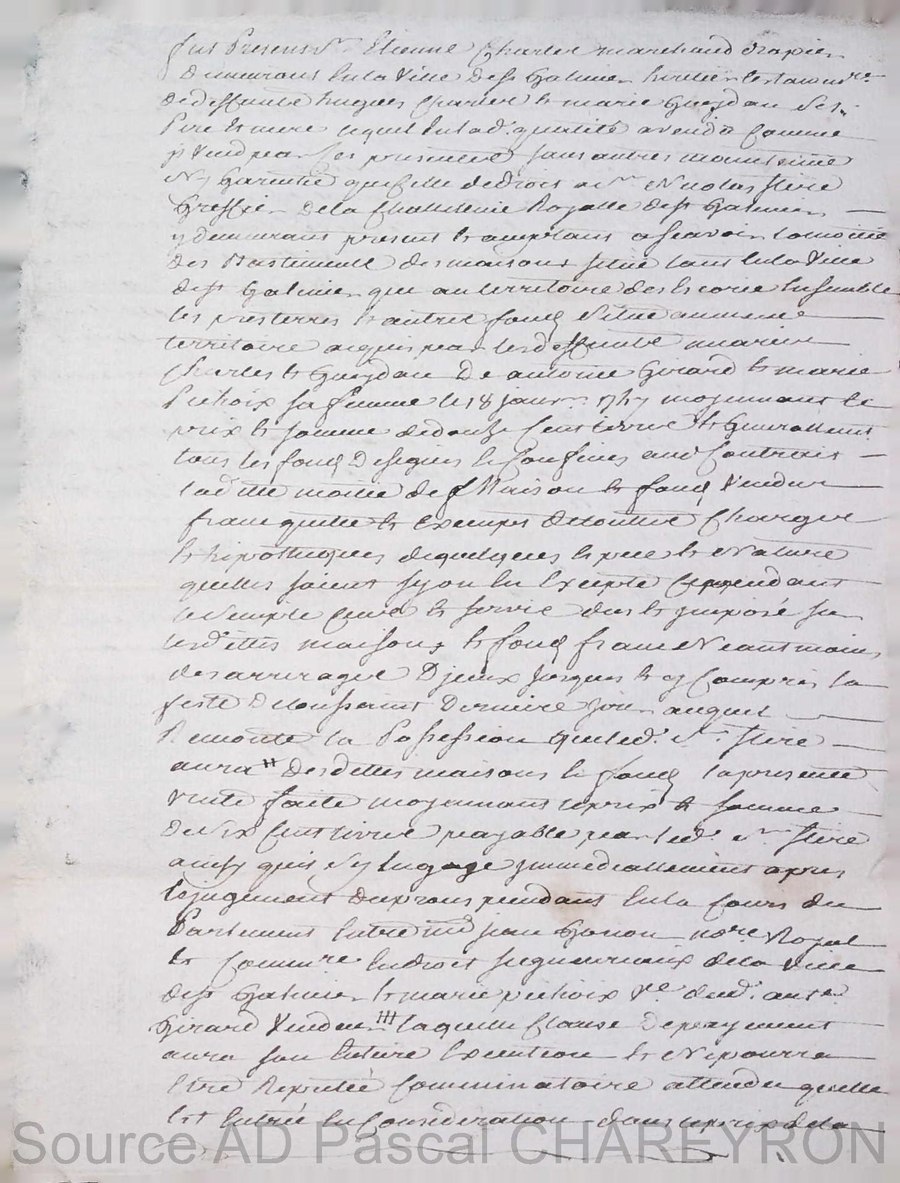 fut Present Sr. Etienne Charles marchand drapier
demeurant en la Ville de St Galmier heritier testamre.
de deffunts hugues Charles et marie Gueydan ses
Pere et mere lequel en lad. qualité a vendu comme
il Vend par ces presentes sans autres
Ny Garentie que celle de droit a Sr. Nicolas
Greffier de la Chatellenie Royalle de St Galmier
y demeurant present et acceptant a scavoir la moitié
des Bastiments des maisons scitué tant en la Ville
de St Galmier que au territoire des ensemble
les pres terres et autres fonds scitué au mesme
territoire acquis par lesd. deffunts mariés
Charles et Gueydan de antoine Girard et marie
Pichoix sa femme le 18 janvr. moyennant le
prix et somme de douze Cent livres et Generallement
tous les fonds designes et confinés aud Contrait
lad. moitié de Maison et fonds Vendu
franc quitte et exempt de toutes Charges
et hipotheques de quelques espece et Nature
quelles soient sy on en excepte Cependant
le simple Cens et servis deus et imposé sur
lesdittes maisons et fonds franc Neantmoins
des arrerages d'iceux jusques et y Compris la
feste de toussaint derniere jour auquel
Remonte la Possession que led. Sr.
aura desdittes maisons et fonds la presente
Vente faite moyennant le prix et somme
de six Cent livres payable par led. Sr.
ainsy quil s'y engage immediattement apres
le jugement du proces pendant en la Cour du
Parlement entre Me jean Gonon nore. Royal
et Commre. en droit seigneuriaux de la Ville
de St Galmier et marie pichoix Ve. dud. ante.
Girard Vendeur laquelle Clause de payement
aura son entiere execution et Ne pourra
etre Reputée Comminatoire attendu quelle
est entrée en Consideration dans le prix de la
Source AD Pascal CHAREYRON